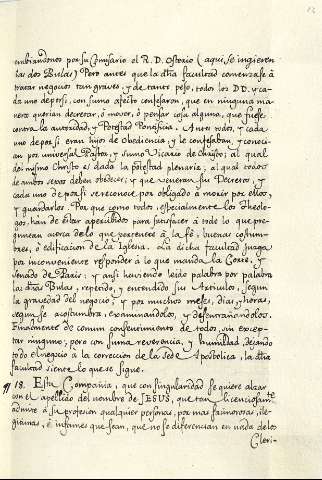 embiandonos por su Comisario el R. D. Ostorio (aqui, se ingieren
las dos Bulas) Pero antes que la dha facultad comenzase à
tratar negocios tan graves, y de tanto peso, todo los DD. y ca-
da uno de por si, con sumo afecto confesaron, que en ninguna ma-
nera querian decretar, ò mover, ò pensar cosa alguna, que fuese
contra la autoridad, y Potestad Pontificia. Antes todos, y cada
uno de por si eran hijos de obediencia, y le confesaban, y conoci-
an por universal Pastor, y sumo Vicario de Christo; al qual
del mismo Christo es dada la potestad plenaria; al qual todos
de ambos sexos deben obedecer, y que veneran su Decreto, y
cada uno de por si se reconoce por obligado à morir por ellos,
y guardarlos. Por que como todos, especialmente los Theolo-
gos, hàn de estar apercibidos para satisfacer à todo lo que pre-
guntan acerca de lo que pertenece à la fè, buenas costum-
bres, ò edificacion de la Iglesia. La dicha facultad juzga
por inconveniente responder à lo que manda la Corte, y
Senado de Paris; y ansi haviendo leido palabra por palabra
las dhas Bulas, repetido, y entendido su Articulos, segun
la gravedad del negocio; y por muchos meses, dias, y horas,
segun se acostumbra, examinandolos, y desentrañandolos.
Finalmente de comun consentimiento de todos, sin excep-
tar ninguno; pero con suma reverencia, y humildad, dejando
todo el negocio à la correccion de la Sede Apostolica, la dha
facultad siente lo que se sigue.
¶ 18. Esta Compañia, que con singularidad se quiere alzar
con el apellido del nombre de JESUS, que tan licenciosamte
admite à su profesion qualquier personas, por mas facinorosas, ile-
gitimas, è infames que sean, que no se diferencian en nada de los
Cleri-